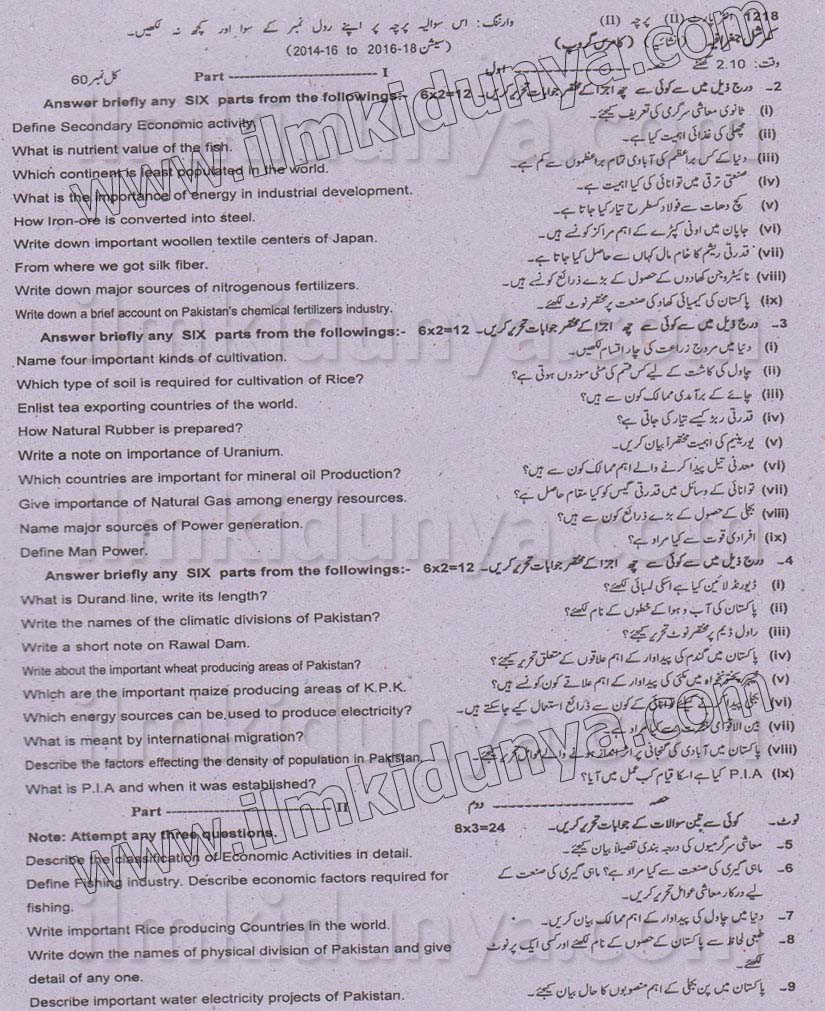 1218 پرچہ (II)
وارننگ: اس سوالیہ پرچہ پر اپنے رول نمبر کے سوا اور کچھ نہ لکھیں۔
(کامرس گروپ)
(سیشن 2014-16 to 2016-18)
وقت: 2.10 گھنٹے
اول Part ---- I کل نمبر 60
Answer briefly any SIX parts from the followings:- 6x2=12 2۔ درج ذیل میں سے کوئی سے چھ اجزا کے مختصر جوابات تحریر کریں۔
Define Secondary Economic activity. (i) ثانوی معاشی سرگرمی کی تعریف کیجئے۔
What is nutrient value of the fish. (ii) مچھلی کی غذائی اہمیت کیا ہے۔
Which continent is least populated in the world. (iii) دنیا کے کس براعظم کی آبادی تمام براعظموں سے کم ہے۔
What is the importance of energy in industrial development. (iv) صنعتی ترقی میں توانائی کی کیا اہمیت ہے۔
How Iron-ore is converted into steel. (v) کچ دھات سے فولاد کسطرح تیار کیا جاتا ہے۔
Write down important woollen textile centers of Japan. (vi) جاپان میں اونی کپڑے کے اہم مراکز کونسے ہیں۔
From where we got silk fiber. (vii) قدرتی ریشم کا خام مال کہاں سے حاصل کیا جاتا ہے۔
Write down major sources of nitrogenous fertilizers. (viii) نائیٹروجن کھادوں کے حصول کے بڑے ذرائع کونسے ہیں۔
Write down a brief account on Pakistan's chemical fertilizers industry. (ix) پاکستان کی کیمیائی کھاد کی صنعت پر مختصر نوٹ لکھئے۔
Answer briefly any SIX parts from the followings:- 6x2=12 3۔ درج ذیل میں سے کوئی سے چھ اجزا کے مختصر جوابات تحریر کریں۔
Name four important kinds of cultivation. (i) دنیا میں مروج زراعت کی چار اقسام لکھیں۔
Which type of soil is required for cultivation of Rice? (ii) چاول کی کاشت کے لیے کس قسم کی مٹی موزوں ہوتی ہے؟
Enlist tea exporting countries of the world. (iii) چائے کے برآمدی ممالک کون سے ہیں؟
How Natural Rubber is prepared? (iv) قدرتی ربڑ کیسے تیار کی جاتی ہے؟
Write a note on importance of Uranium. (v) یورینیم کی اہمیت مختصراً بیان کریں۔
Which countries are important for mineral oil Production? (vi) معدنی تیل پیدا کرنے والے اہم ممالک کون سے ہیں؟
Give importance of Natural Gas among energy resources. (vii) توانائی کے وسائل میں قدرتی گیس کو کیا مقام حاصل ہے؟
Name major sources of Power generation. (viii) بجلی کے حصول کے بڑے ذرائع کون سے ہیں؟
Define Man Power. (ix) افرادی قوت سے کیا مراد ہے؟
Answer briefly any SIX parts from the followings:- 6x2=12 4۔ درج ذیل میں سے کوئی سے چھ اجزا کے مختصر جوابات تحریر کریں۔
What is Durand line, write its length? (i) ڈیورنڈ لائین کیا ہے اسکی لمبائی لکھئے؟
Write the names of the climatic divisions of Pakistan? (ii) پاکستان کی آب و ہوا کے خطوں کے نام لکھئے؟
Write a short note on Rawal Dam. (iii) راول ڈیم پر مختصر نوٹ تحریر کیجئے؟
Write about the important wheat producing areas of Pakistan? (iv) پاکستان میں گندم کی پیداوار کے اہم علاقوں کے متعلق تحریر کیجئے؟
Which are the important maize producing areas of K.P.K. (v) خیبر پختونخواہ میں مکئی کی پیداوار کے اہم علاقے کون کونسے ہیں؟
Which energy sources can be used to produce electricity? (vi) بجلی پیدا کرنے کے لئے توانائی کے کون سے ذرائع استعمال کیے جا سکتے ہیں۔
What is meant by international migration? (vii) بین الاقوامی
Describe the factors effecting the density of population in Pakistan. (viii) پاکستان میں آبادی کی گنجانی پر اثر انداز ہونے والے عوامل تحریر کیجئے۔
What is P.I.A and when it was established? (ix) P.I.A کیا ہے اسکا قیام کب عمل میں آیا؟
Part ---- II حصہ ---- دوم
Note: Attempt any three questions. 8x3=24 نوٹ۔ کوئی سے تین سوالات کے جوابات تحریر کریں۔
Describe the classification of Economic Activities in detail. 5۔ معاشی سرگرمیوں کی درجہ بندی تفصیلاً بیان کیجئے۔
Define Fishing industry. Describe economic factors required for 6۔ ماہی گیری کی صنعت سے کیا مراد ہے؟ ماہی گیری کی صنعت کے
fishing. لیے درکار معاشی عوامل تحریر کریں۔
Write important Rice producing Countries in the world. 7۔ دنیا میں چاول کی پیداوار کے اہم ممالک بیان کریں۔
Write down the names of physical division of Pakistan and give 8۔ طبعی لحاظ سے پاکستان کے حصوں کے نام لکھئے اور کسی ایک پر نوٹ
detail of any one. لکھئے۔
Describe important water electricity projects of Pakistan. 9۔ پاکستان میں پن بجلی کے اہم منصوبوں کا حال بیان کیجئے۔
www.ilmkidunya.com
www.ilmkidunya.com
ilmkidunya.com
ilmkidunya.com
ilmkidunya.com
ilmkidunya.com